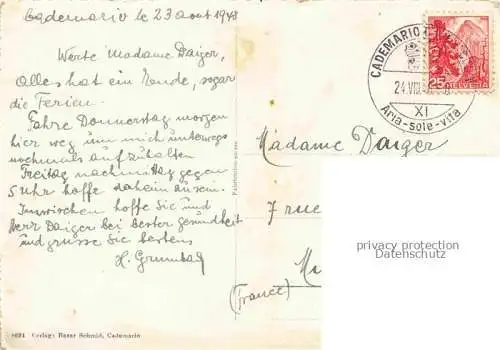 Cademario le 23 aout 1948
Werte Madame Daiger,
Alles hat ein Ende, sogar
die Ferien.
Fahre Donnerstag morgen
hier weg um mich unterwegs
nochmals aufzuhalten
Freitag nachmittag gegen
5 Uhr hoffe daheim zu sein.
Inzwischen hoffe Sie und
Herr Daiger bei bester Gesundheit
und grüsse Sie bestens
H. Grumbach
Verlag: Bazar Schmid, Cademario
CADEMARIO
24.VIII.
XI
Aria-sole-vita
25
HELVETIA
Madame Daiger
7 rue
(France)
privacy protection
Datenschutz